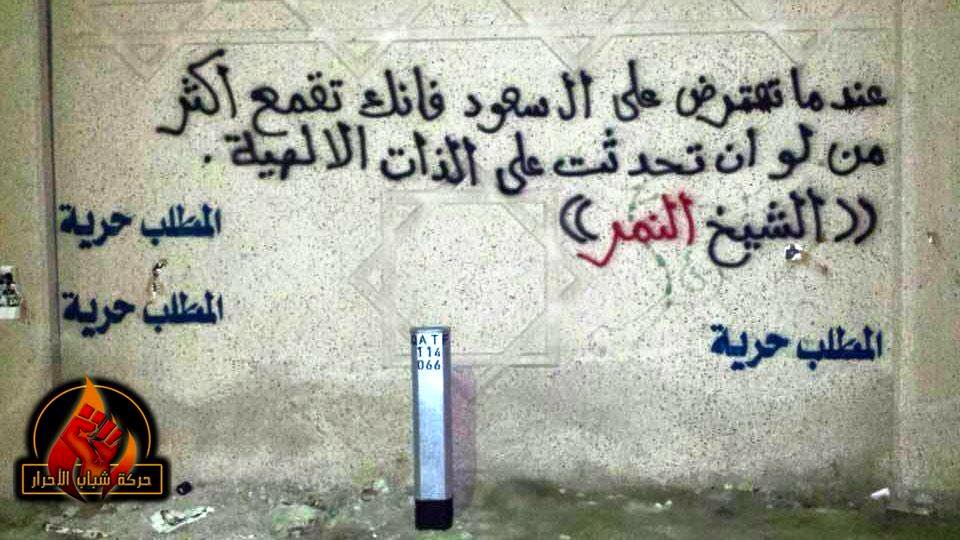 عندما تعترض على ال سعود فانك تقمع اكثر
من لو ان تحدثت على الذات الالهية .
((الشيخ النمر))
المطلب حرية
المطلب حرية
المطلب حرية
AT
114
066
حركة شباب الأحرار